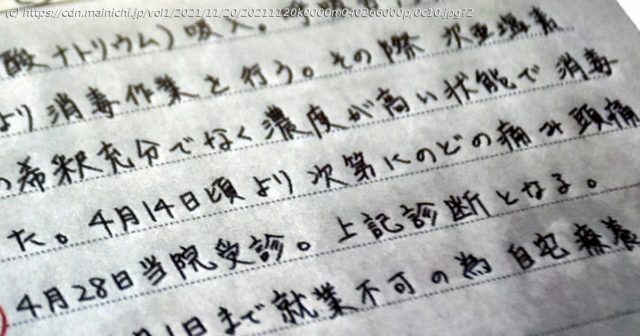 (c) https://cdn.mainichi.jp/vol1/2021/11/20/20211120k0000m040266000p/0c10.jpg?2
酸ナトリウム)吸入。
より消毒作業を行う。その際 次亜塩素
の希釈充分でなく濃度が高い状態で消毒
た。4月14日頃より次第にのどの痛み頭痛
4月28日当院受診。上記診断となる。
月1日まで就業不可の為 自宅療養